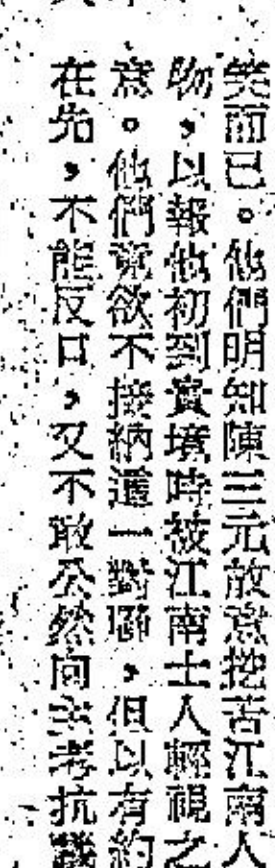 笑而已。他們明知陳三元故意挖苦江南人
物，以報他初到實境時被江南士人輕視之
意。他們意欲不接納這一對聯，但以有約
在先，不能反口，又不敢公然向主考抗議